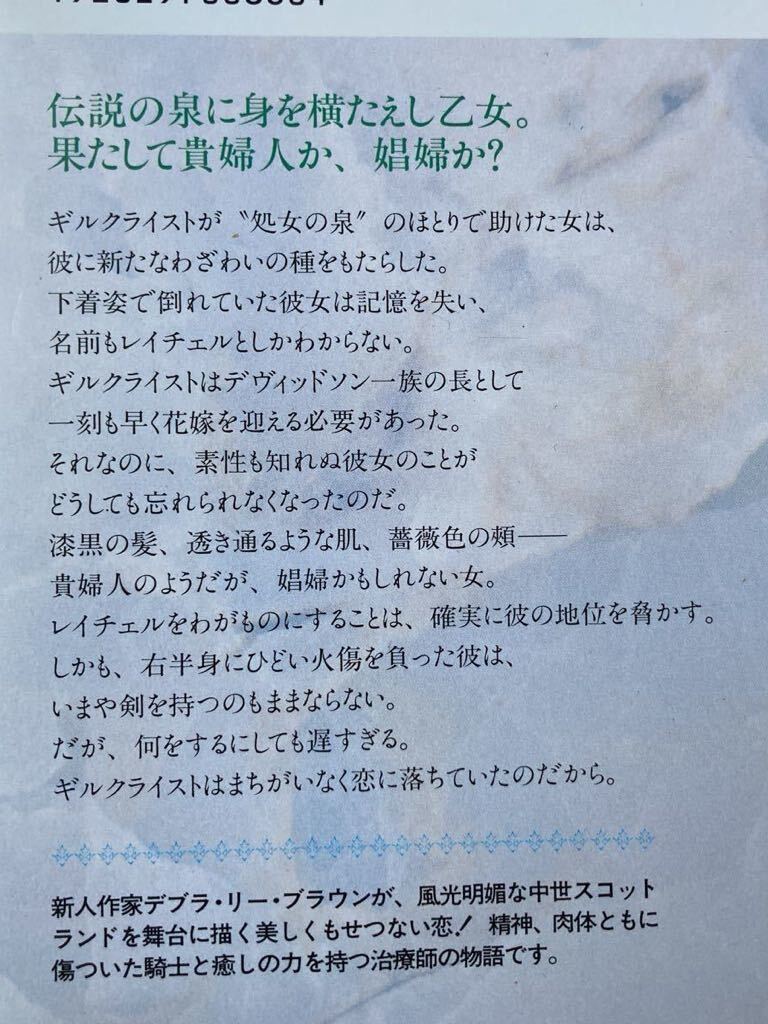 伝説の泉に身を横たえし乙女。
果たして貴婦人か、娼婦か?
ギルクライストが〝処女の泉〟のほとりで助けた女は、
彼に新たなわざわいの種をもたらした。
下着姿で倒れていた彼女は記憶を失い、
名前もレイチェルとしかわからない。
ギルクライストはデヴィッドソン一族の長として
一刻も早く花嫁を迎える必要があった。
それなのに、素性も知れぬ彼女のことが
どうしても忘れられなくなったのだ。
漆黒の髪、透き通るような肌、薔薇色の頰──
貴婦人のようだが、娼婦かもしれない女。
レイチェルをわがものにすることは、確実に彼の地位を脅かす。
しかも、右半身にひどい火傷を負った彼は、
いまや剣を持つのもままならない。
だが、何をするにしても遅すぎる。
ギルクライストはまちがいなく恋に落ちていたのだから。
新人作家デブラ・リー・ブラウンが、風光明媚な中世スコット
ランドを舞台に描く美しくもせつない恋! 精神、肉体ともに
傷ついた騎士と癒しの力を持つ治療師の物語です。